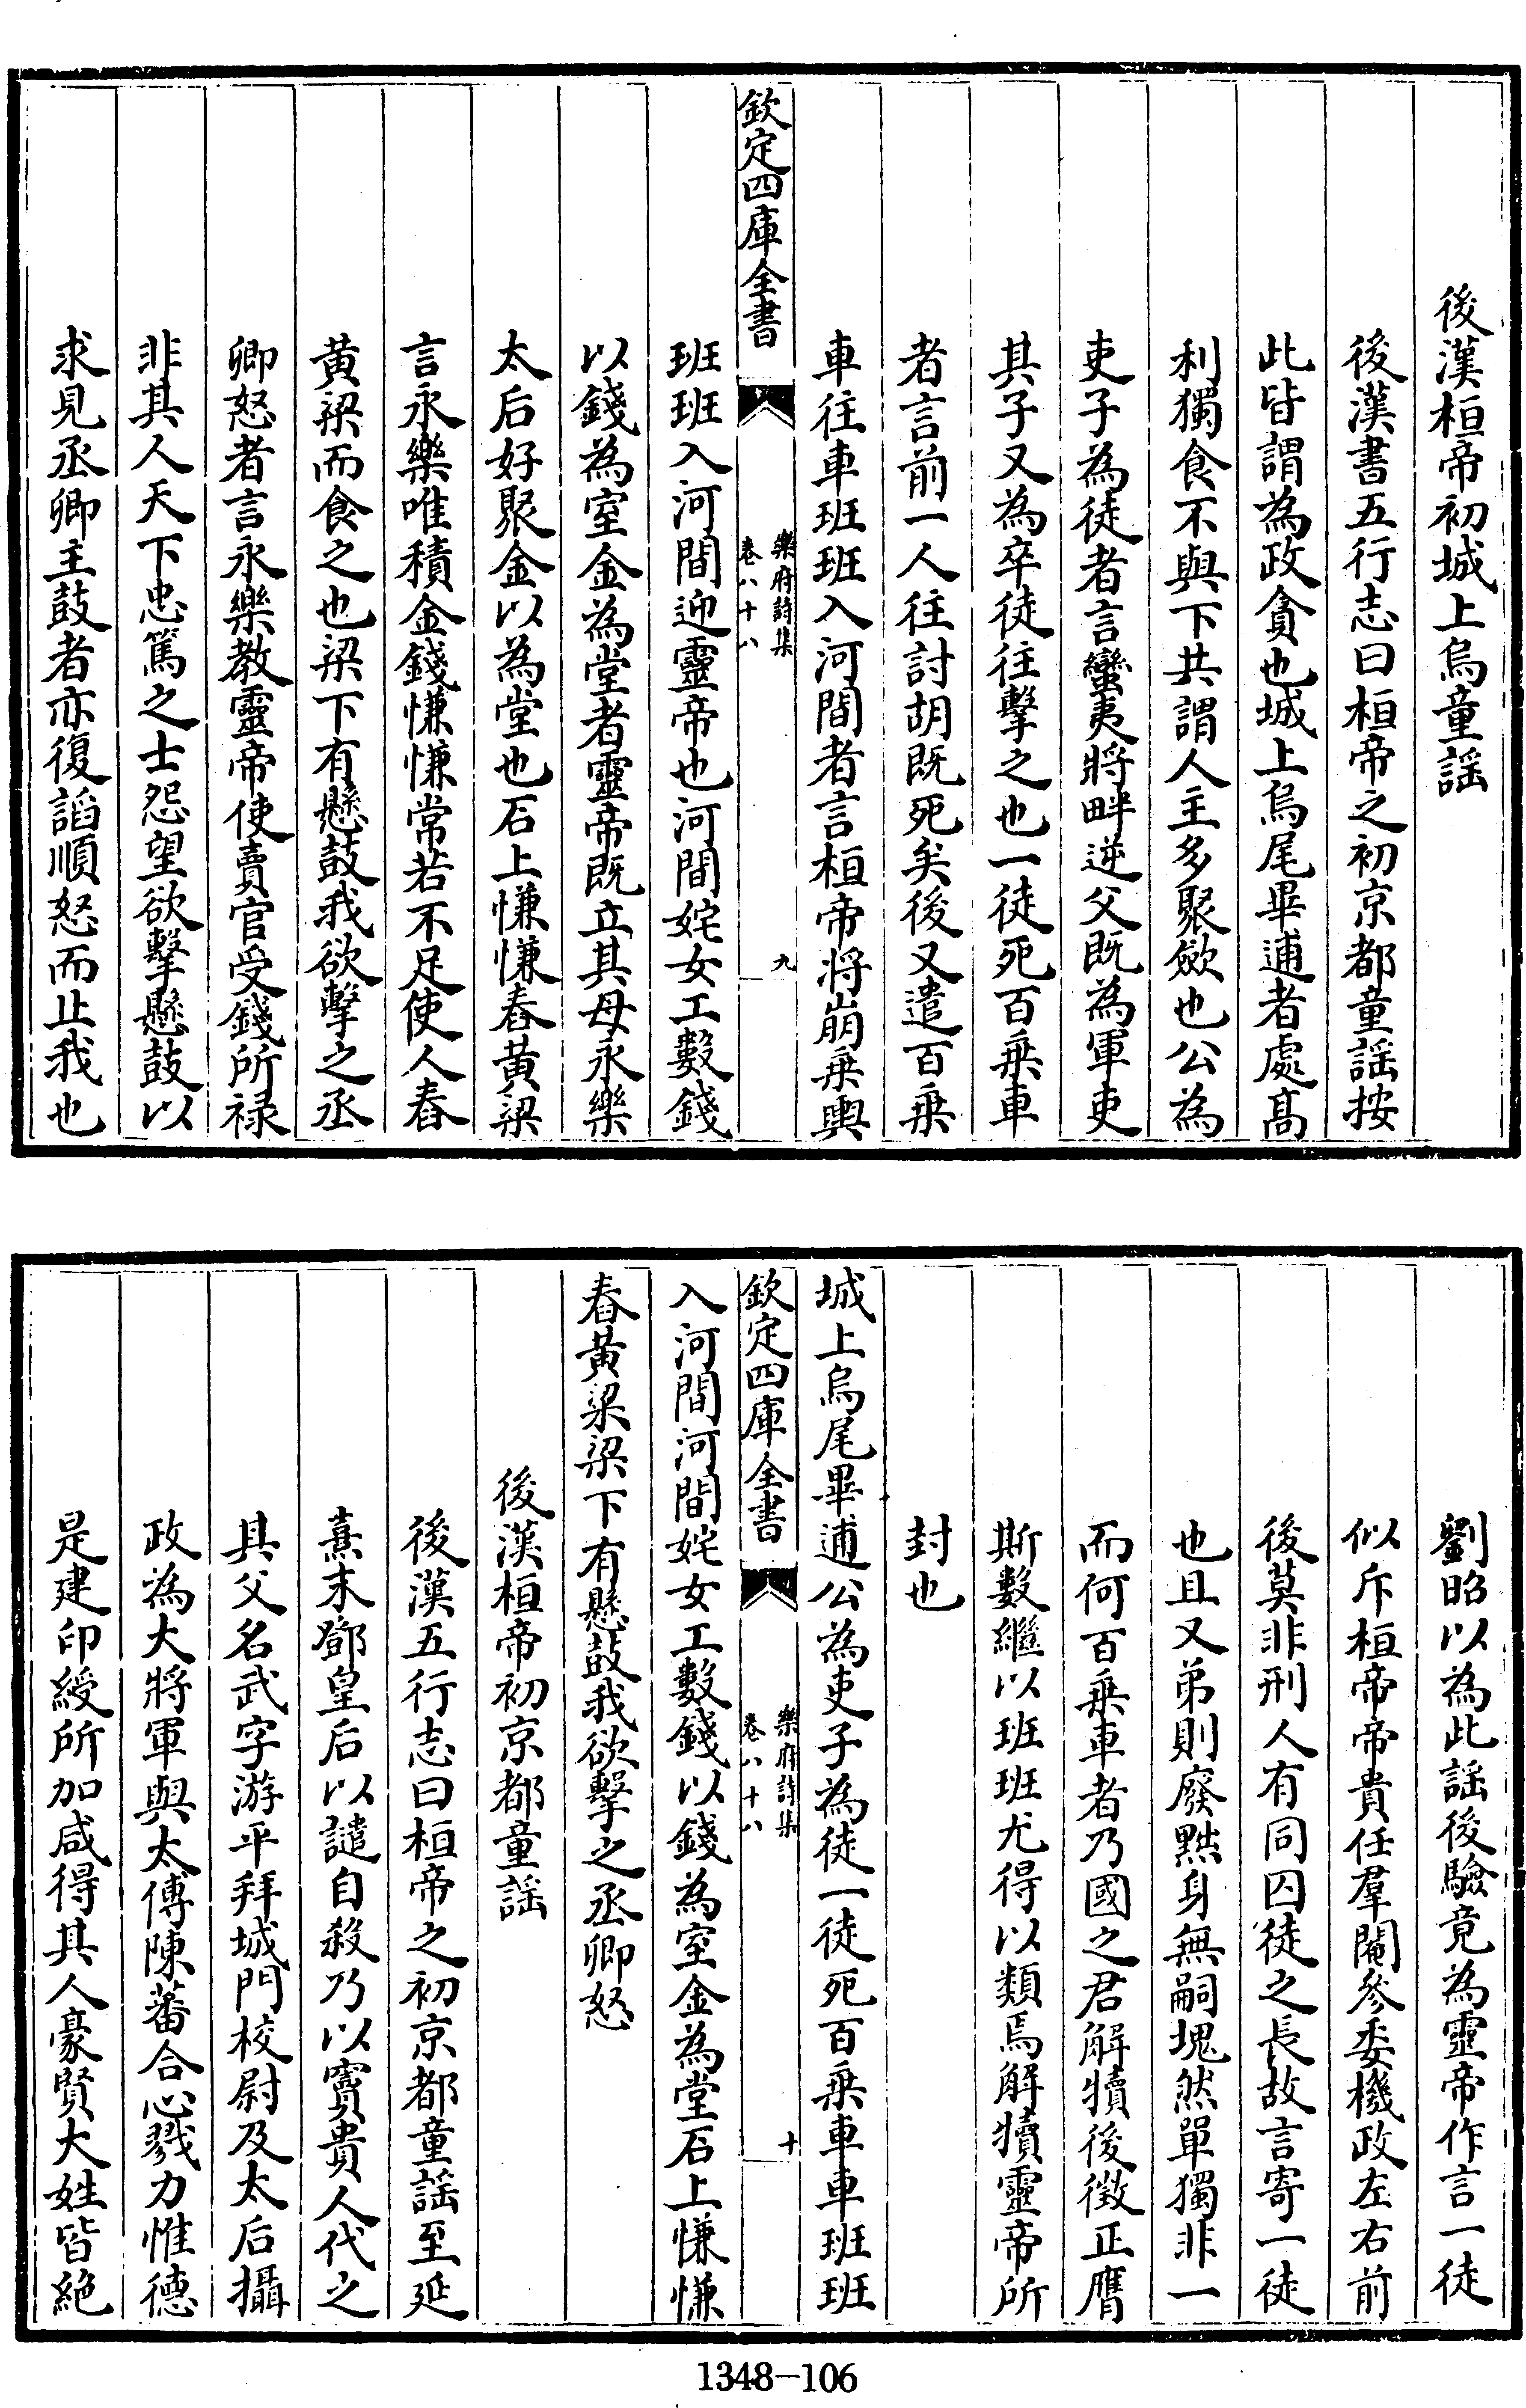 後漢桓帝初城上烏童謡
後漢書五行志曰桓帝之初京都童謡按
此皆謂為政貪也城上烏尾畢逋者處髙
利獨食不與下共謂人主多聚斂也公為
吏子為徒者言蠻夷將畔逆父既為軍吏
其子又為卒徒往擊之也一徒死百乗車
者言前一人往討胡既死矣後又遣百乗
車往車班班入河間者言桓帝將崩乗輿
欽定四庫全書
樂府詩集
卷八十八
九
班班入河間迎靈帝也河間姹女工數錢
以錢為室金為堂者靈帝既立其母永樂
太后好聚金以為堂也石上慊慊舂黄粱
言永樂唯積金錢慊慊常若不足使人舂
黄粱而食之也梁下有懸鼓我欲擊之丞
卿怒者言永樂教靈帝使賣官受錢所禄
非其人天下忠篤之士怨望欲擊懸鼓以
求見丞卿主鼓者亦復諂順怒而止我也
劉昭以為此謡後驗竟為靈帝作言一徒
似斥桓帝帝貴任羣閹參委機政左右前
後莫非刑人有同囚徒之長故言寄一徒
也且又弟則廢黜身無嗣塊然單獨非一
而何百乗車者乃國之君解犢後徴正膺
斯數繼以班班尤得以類焉解犢靈帝所
封也
城上烏尾畢逋公為吏子為徒一徒死百乗車車班班
欽定四庫全書
樂府詩集
卷八十八
十
入河間河間姹女工數錢以錢為室金為堂石上慊慊
舂黄粱梁下有懸鼓我欲擊之丞卿怒
後漢桓帝初京都童謡
後漢五行志曰桓帝之初京都童謡至延
熹末鄧皇后以譴自殺乃以竇貴人代之
其父名武字游平拜城門校尉及太后攝
政為大將軍與太傅陳蕃合心戮力惟德
是建印綬所加咸得其人豪賢大姓皆絶
1348-106